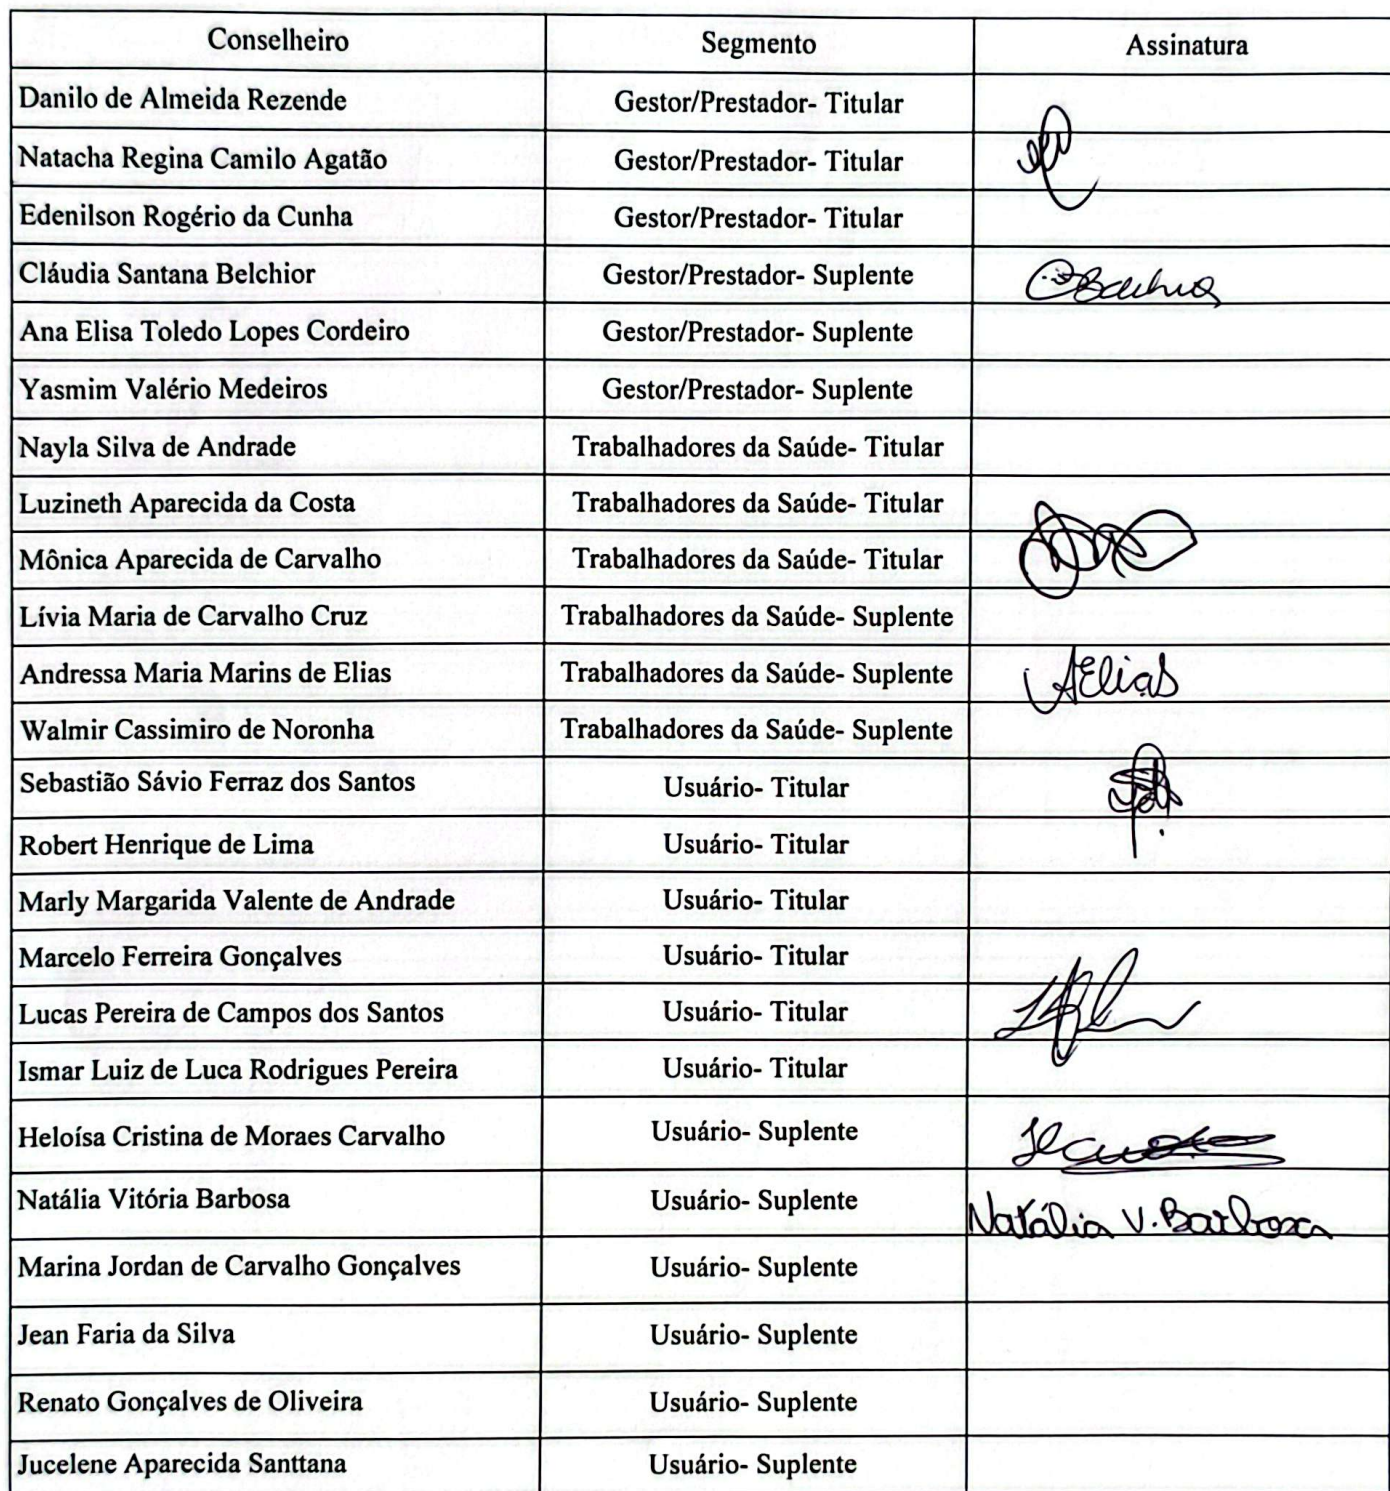 Conselheiro Segmento Assinatura
Danilo de Almeida Rezende Gestor/Prestador- Titular
Natacha Regina Camilo Agatão Gestor/Prestador- Titular
Edenilson Rogério da Cunha Gestor/Prestador- Titular
Cláudia Santana Belchior Gestor/Prestador- Suplente
Ana Elisa Toledo Lopes Cordeiro Gestor/Prestador- Suplente
Yasmim Valério Medeiros Gestor/Prestador- Suplente
Nayla Silva de Andrade Trabalhadores da Saúde- Titular
Luzineth Aparecida da Costa Trabalhadores da Saúde- Titular
Mônica Aparecida de Carvalho Trabalhadores da Saúde- Titular
Lívia Maria de Carvalho Cruz Trabalhadores da Saúde- Suplente
Andressa Maria Marins de Elias Trabalhadores da Saúde- Suplente AElias
Walmir Cassimiro de Noronha Trabalhadores da Saúde- Suplente
Sebastião Sávio Ferraz dos Santos Usuário- Titular
Robert Henrique de Lima Usuário- Titular
Marly Margarida Valente de Andrade Usuário- Titular
Marcelo Ferreira Gonçalves Usuário- Titular
Lucas Pereira de Campos dos Santos Usuário- Titular
Ismar Luiz de Luca Rodrigues Pereira Usuário- Titular
Heloísa Cristina de Moraes Carvalho Usuário- Suplente
Natália Vitória Barbosa Usuário- Suplente Natália V. Barbosa
Marina Jordan de Carvalho Gonçalves Usuário- Suplente
Jean Faria da Silva Usuário- Suplente
Renato Gonçalves de Oliveira Usuário- Suplente
Jucelene Aparecida Santtana Usuário- Suplente